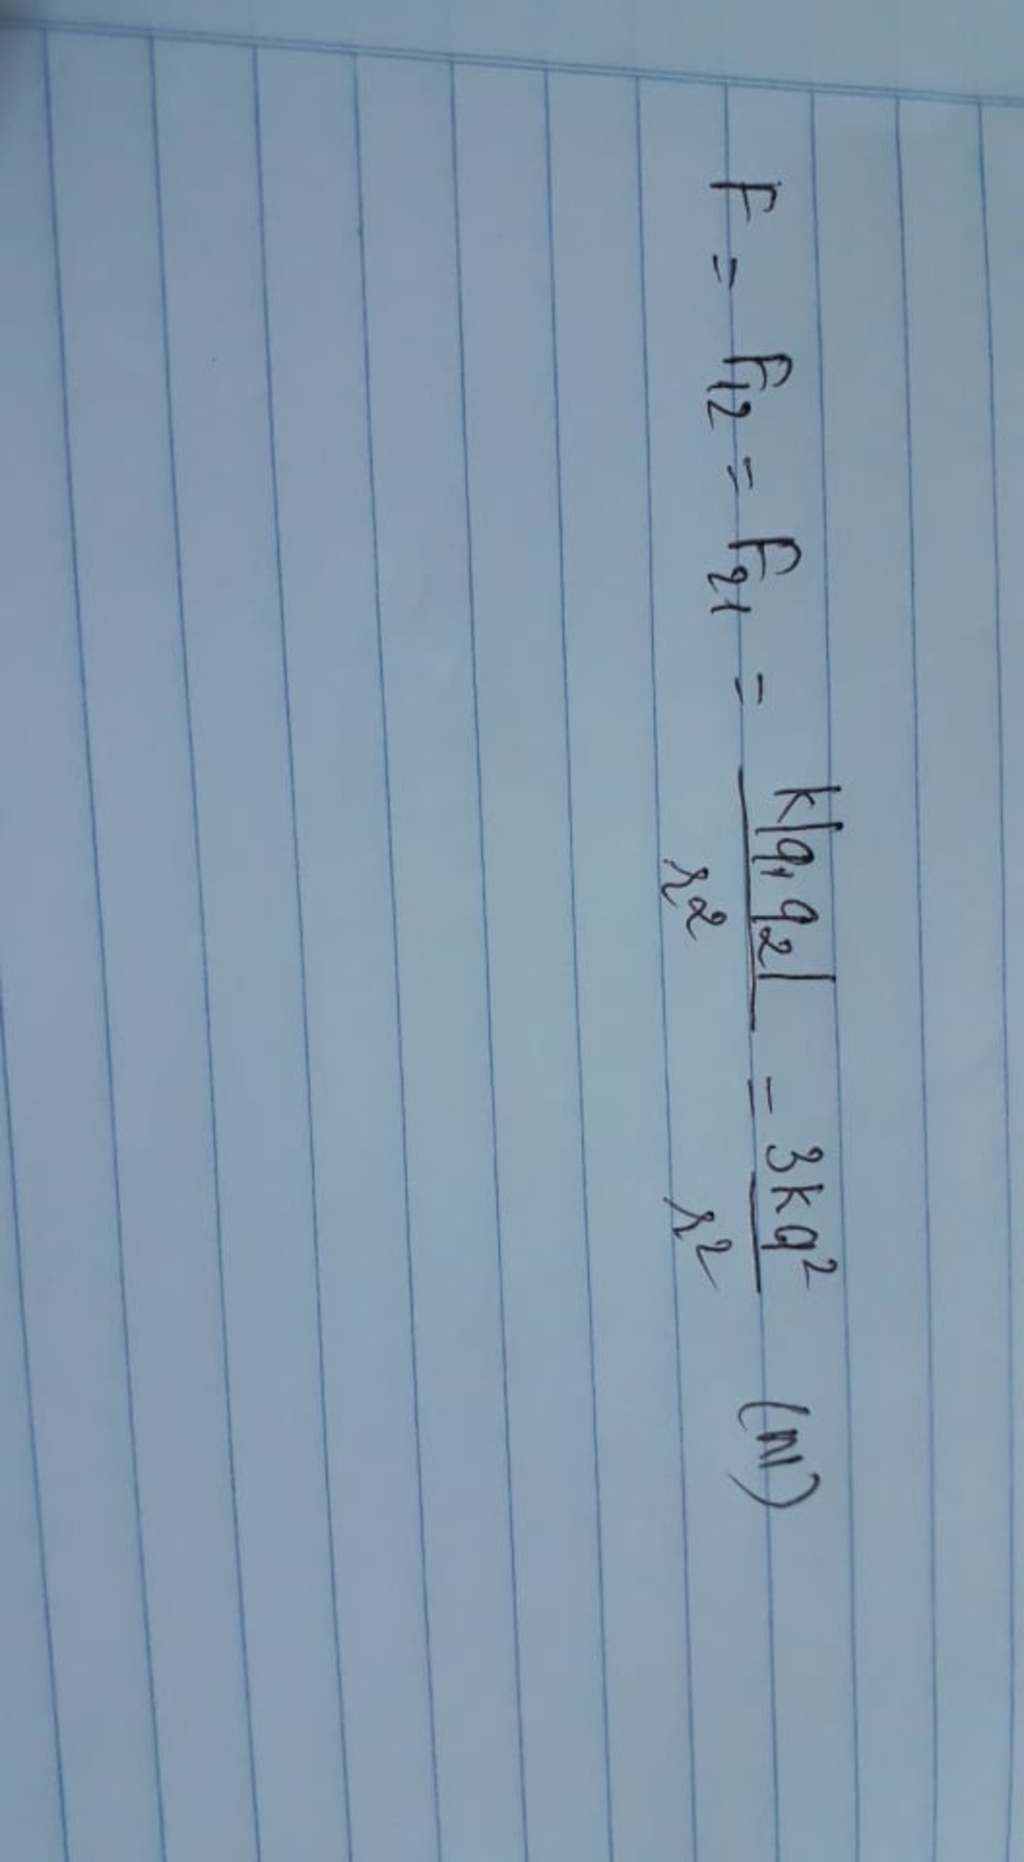 F = F₁₂ = F₂₁ = k|q₁ q₂| / r² = 3kq² / r² (N)